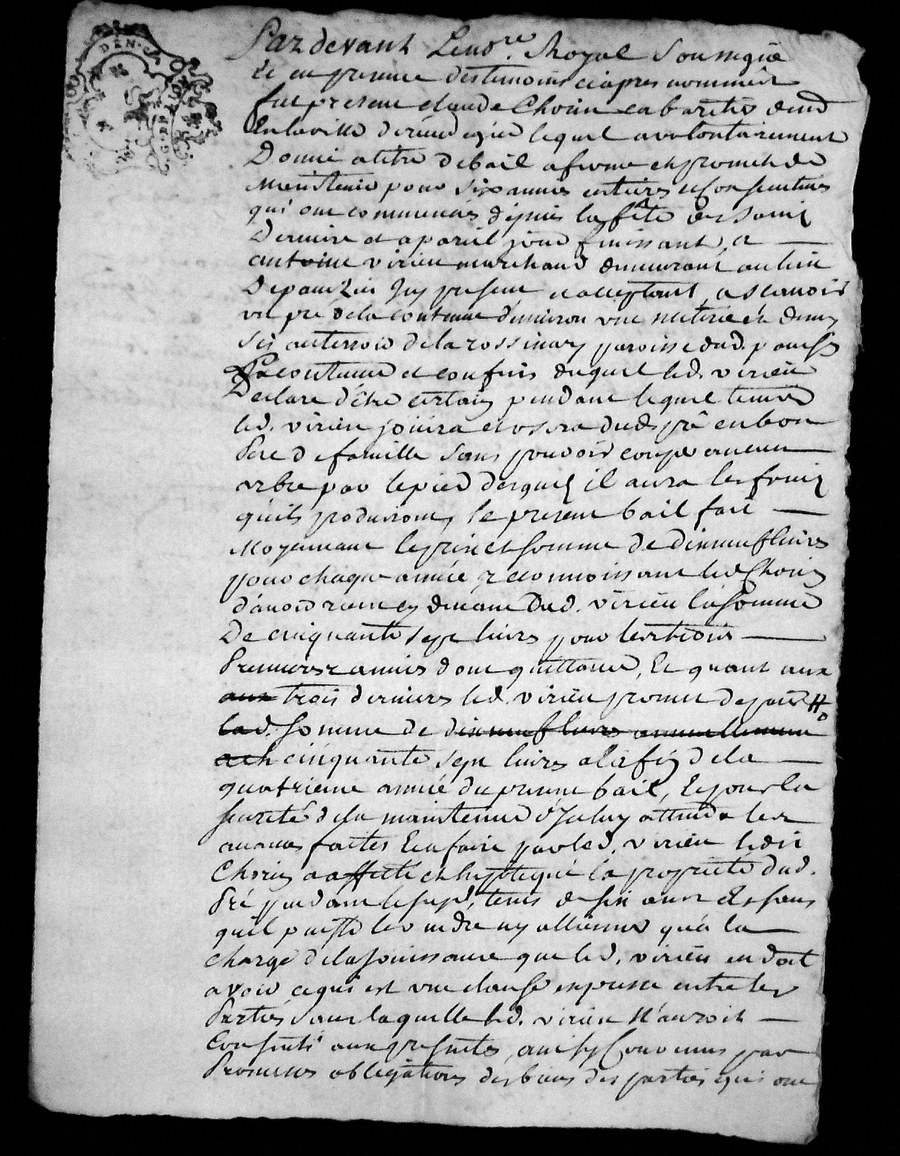 DEN.
Par devant Le no.re Royal Soussigné
Et en presence des temoins ci apres nommés
fut present claude Choin cabaretier dem.t
En la ville de lequel a volontairement
Donné a titre de bail a ferme et promet de
Maintenir pour six années entieres et Consecutives
qui ont commencés depuis la fête de Saint
Derniere et a pareil jour finissant, a
antoine virieu marchand demeurant au lieu
De icy present et acceptant, a scavoir
un pré de la contenue d'environ une
Sis au terroir de la paroisse dud.
La contenue et confins duquel led. virieu
Declare d'être certain pendant lequel tems
led. virieu jouira et usera dud. pré en bon
Pere de famille sans pouvoir couper aucun
arbre par le pied desquels il aura les fruits
qu'ils produiront, le present bail fait
Moyennant le prix et somme de dixneuf livres
pour chaque année reconnoissant led. Choin
d'avoir receu cy devant dud. virieu la somme
De cinquante sept livres pour les trois
Premieres années dont quittance, Et quant aux
aux trois dernieres led. virieu promet de payer #
lad. somme de dixneuf livres annuellement
cinquante sept livres a la fin de la
quatrieme année du present bail, Et pour la
sureté de la maintenue attendu les
avances faites Et a faire par led. virieu ledit
Choin a affecté et hypotequé la propriété dud.
Pré pendant led. tems de six ans Et sans
qu'il puisse le vendre ny alliener qu'à la
charge de la jouissance que led. virieu en doit
avoir ce qui est une clause expresse entre les
Parties sans laquelle led. virieu n'auroit
Consenti aux presentes, ainsy Convenu par
Promesses obligations des biens des parties qui ont